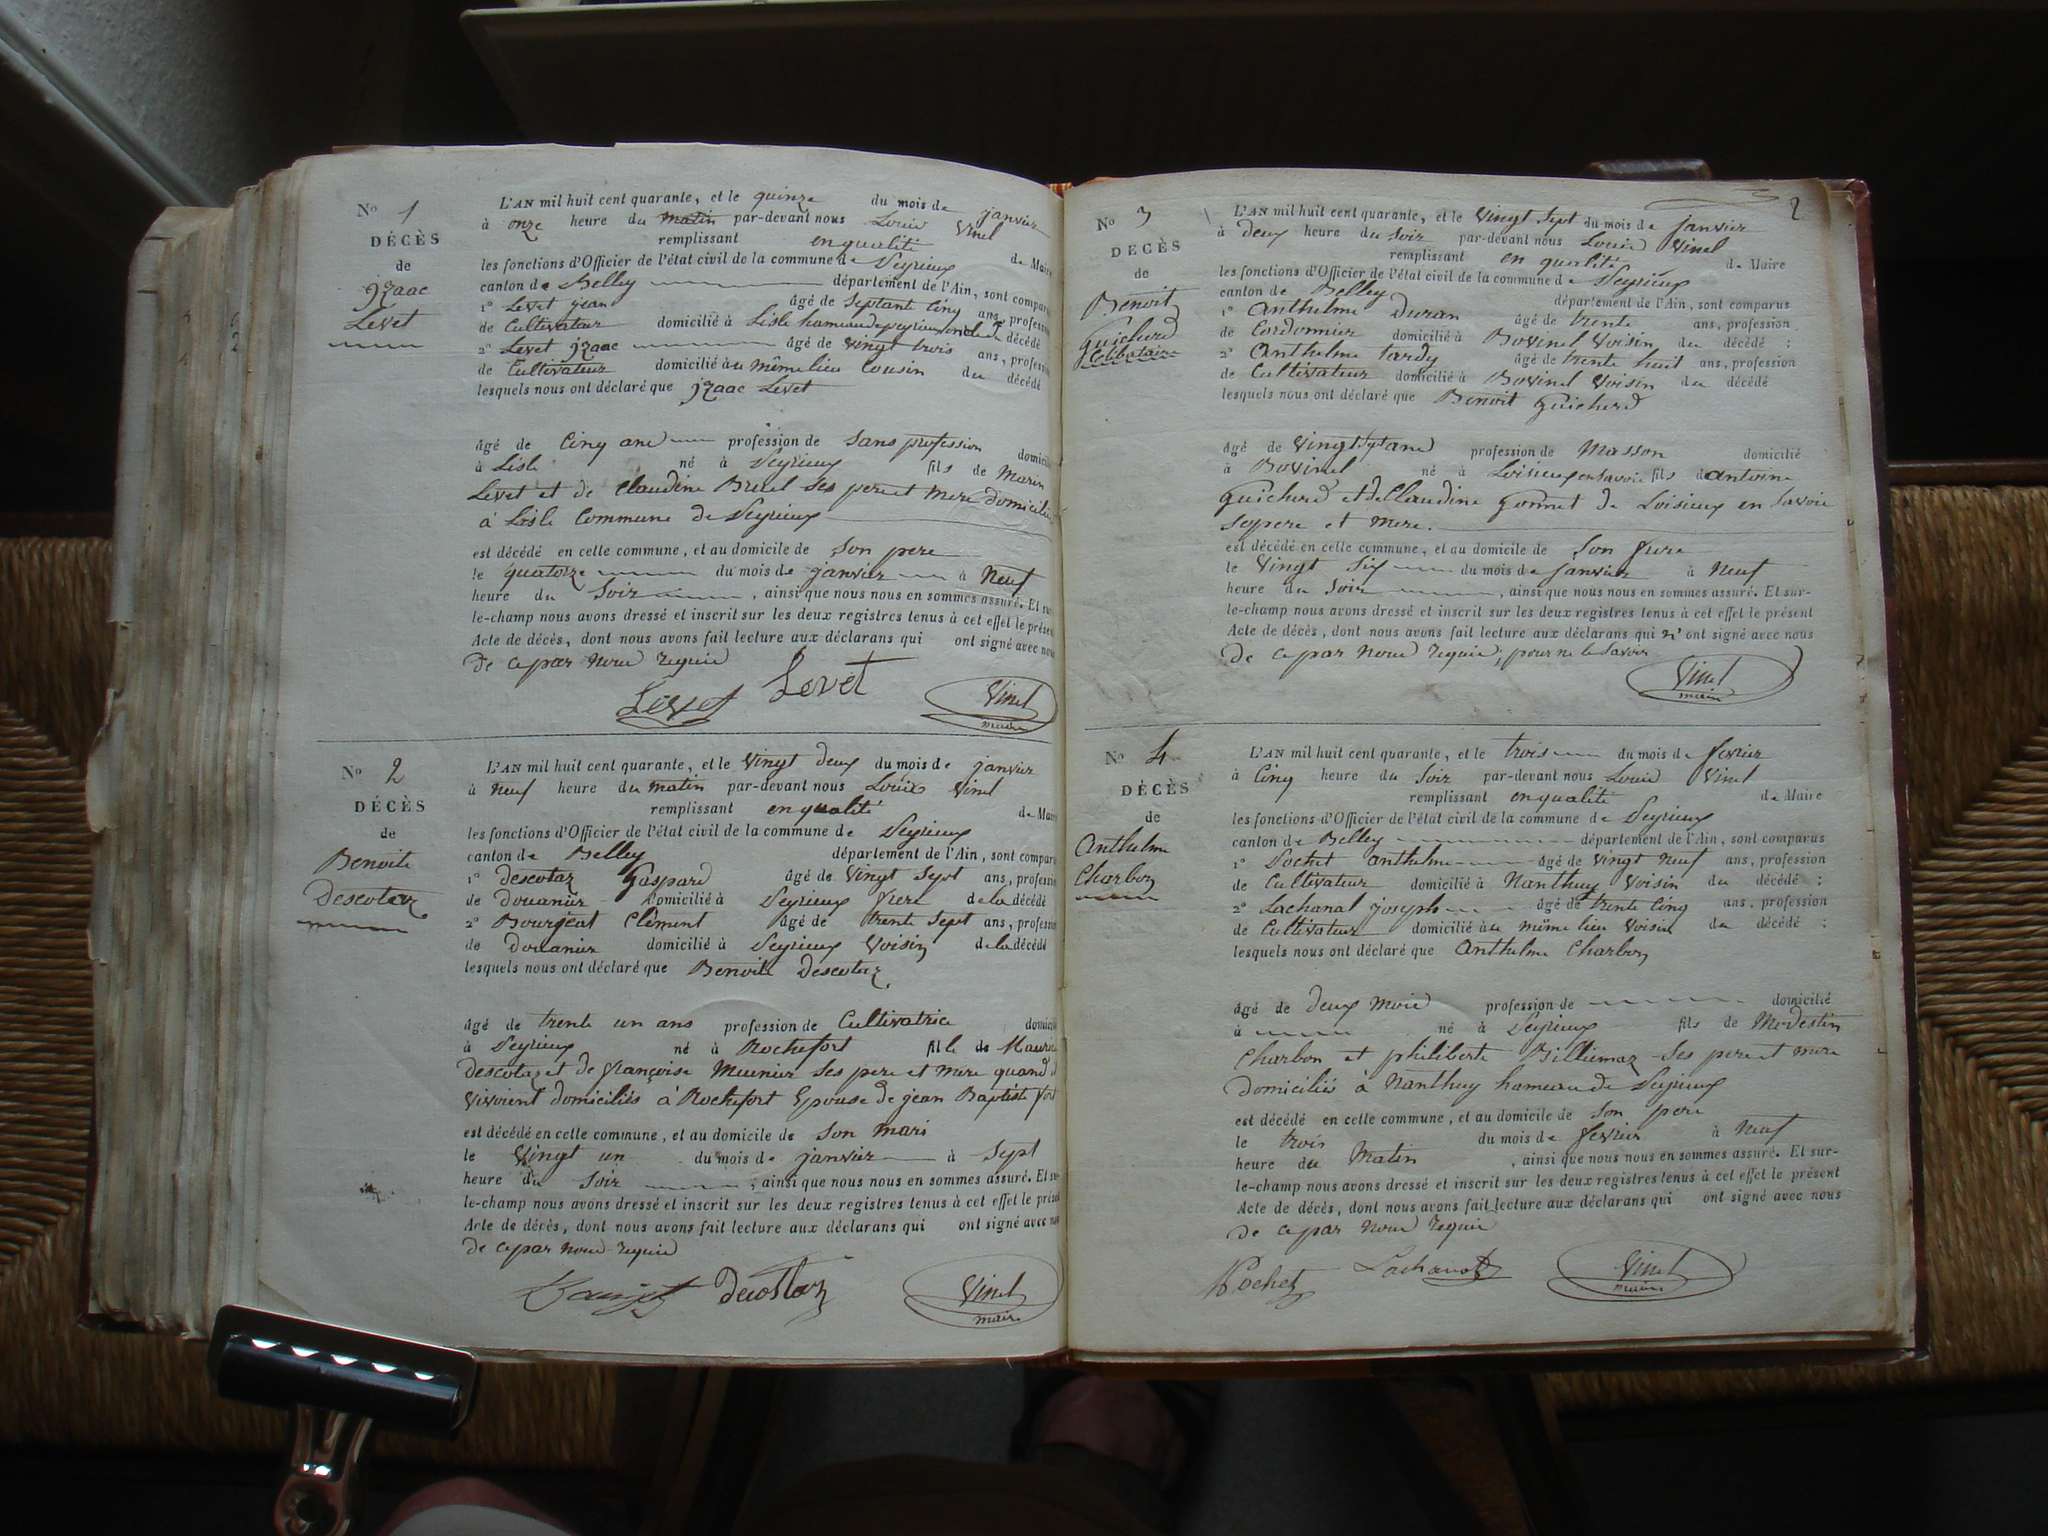 No 1
DÉCÈS
de
jzaac
Levet
L'AN mil huit cent quarante, et le quinze du mois de janvier
à onze heure du matin par-devant nous Louis Vinel
remplissant en qualité de Maire
les fonctions d'Officier de l'état civil de la commune de Peyrieux
canton de Belley département de l'Ain, sont comparus
1o Levet jean âgé de septant cinq ans, profession
de Cultivateur domicilié à Lisle hameau de peyrieux du décédé
2o Levet jzaac âgé de vingt trois ans, profession
de Cultivateur domicilié au même lieu Cousin du décédé
lesquels nous ont déclaré que jzaac Levet
âgé de Cinq ans profession de sans profession domicilié
à Lisle né à Peyrieux fils de Marin
Levet et de Claudine Bruel ses pere et mere domicilies
à Lisle Commune de Peyrieux
est décédé en celle commune, et au domicile de son pere
le quatorze du mois de janvier à Neuf
heure du Soir, ainsi que nous nous en sommes assuré. Et sur-
le-champ nous avons dressé et inscrit sur les deux registres tenus à cet effet le présent
Acte de décès, dont nous avons fait lecture aux déclarans qui ont signé avec nous
de ce par nous requis
Levet Levet Vinel
maire
No 2
DÉCÈS
de
Benoite
Descotaz
L'AN mil huit cent quarante, et le vingt deux du mois de janvier
à neuf heure du matin par-devant nous Louis Vinel
remplissant en qualité de Maire
les fonctions d'Officier de l'état civil de la commune de Peyrieux
canton de Belley département de l'Ain, sont comparus
1o Descotaz Gaspard âgé de vingt sept ans, profession
de Douanier domicilié à Peyrieux frere de la décédé
2o Bourgeat Clément âgé de trente sept ans, profession
de Douanier domicilié à Peyrieux Voisin de la décédé
lesquels nous ont déclaré que Benoite Descotaz
âgé de trente un ans profession de Cultivatrice domicilié
à Peyrieux né à Rochefort fille de Maurice
descotaz et de françoise Meunier ses pere et mere quand
vivoient domiciliés à Rochefort Epouse de jean Baptiste fort
est décédé en celle commune, et au domicile de son mari
le vingt un du mois de janvier à Sept
heure du Soir, ainsi que nous nous en sommes assuré. Et sur-
le-champ nous avons dressé et inscrit sur les deux registres tenus à cet effet le présent
Acte de décès, dont nous avons fait lecture aux déclarans qui ont signé avec nous
de ce par nous requis
Decostaz Vinel
maire
2
No 3
DÉCÈS
de
Benoit
Guicherd
Célibataire
L'AN mil huit cent quarante, et le vingt sept du mois de janvier
à deux heure du soir par-devant nous Louis Vinel
remplissant en qualité de Maire
les fonctions d'Officier de l'état civil de la commune de Peyrieux
canton de Belley département de l'Ain, sont comparus
1o Anthelme Duran âgé de trente ans, profession
de Cordonnier domicilié à Bovinel Voisin du décédé ;
2o Anthelme tardy âgé de trente huit ans, profession
de Cultivateur domicilié à Bovinel Voisin du décédé
lesquels nous ont déclaré que Benoit Guicherd
âgé de vingt sept ans profession de Masson domicilié
à Bovinel né à Loisieux en Savoie fils d'antoine
Guicherd et de Claudine Gonnet de Loisieux en Savoie
ses pere et mere.
est décédé en celle commune, et au domicile de son frere
le vingt six du mois de janvier à Neuf
heure du Soir, ainsi que nous nous en sommes assuré. Et sur-
le-champ nous avons dressé et inscrit sur les deux registres tenus à cet effet le présent
Acte de décès, dont nous avons fait lecture aux déclarans qui n'ont signé avec nous
de ce par nous requis, pour ne le savoir
Vinel
maire
No 4
DÉCÈS
de
Anthelme
Charbon
L'AN mil huit cent quarante, et le trois du mois de fevrier
à Cinq heure du soir par-devant nous Louis Vinel
remplissant en qualité de Maire
les fonctions d'Officier de l'état civil de la commune de Peyrieux
canton de Belley département de l'Ain, sont comparus
1o Pochet anthelme âgé de vingt neuf ans, profession
de Cultivateur domicilié à Nanthuy Voisin du décédé ;
2o Lachanal joseph âgé de trente Cinq ans, profession
de Cultivateur domicilié au même lieu Voisin du décédé ;
lesquels nous ont déclaré que Anthelme Charbon
âgé de deux mois profession de domicilié
à né à Peyrieux fils de Modestin
Charbon et philiberte Billiemaz ses pere et mere
domiciliés à Nanthuy hameau de Peyrieux
est décédé en celle commune, et au domicile de son pere
le trois du mois de fevrier à Neuf
heure du Matin, ainsi que nous nous en sommes assuré. Et sur-
le-champ nous avons dressé et inscrit sur les deux registres tenus à cet effet le présent
Acte de décès, dont nous avons fait lecture aux déclarans qui ont signé avec nous
de ce par nous requis
Pochet Lachanal Vinel
maire